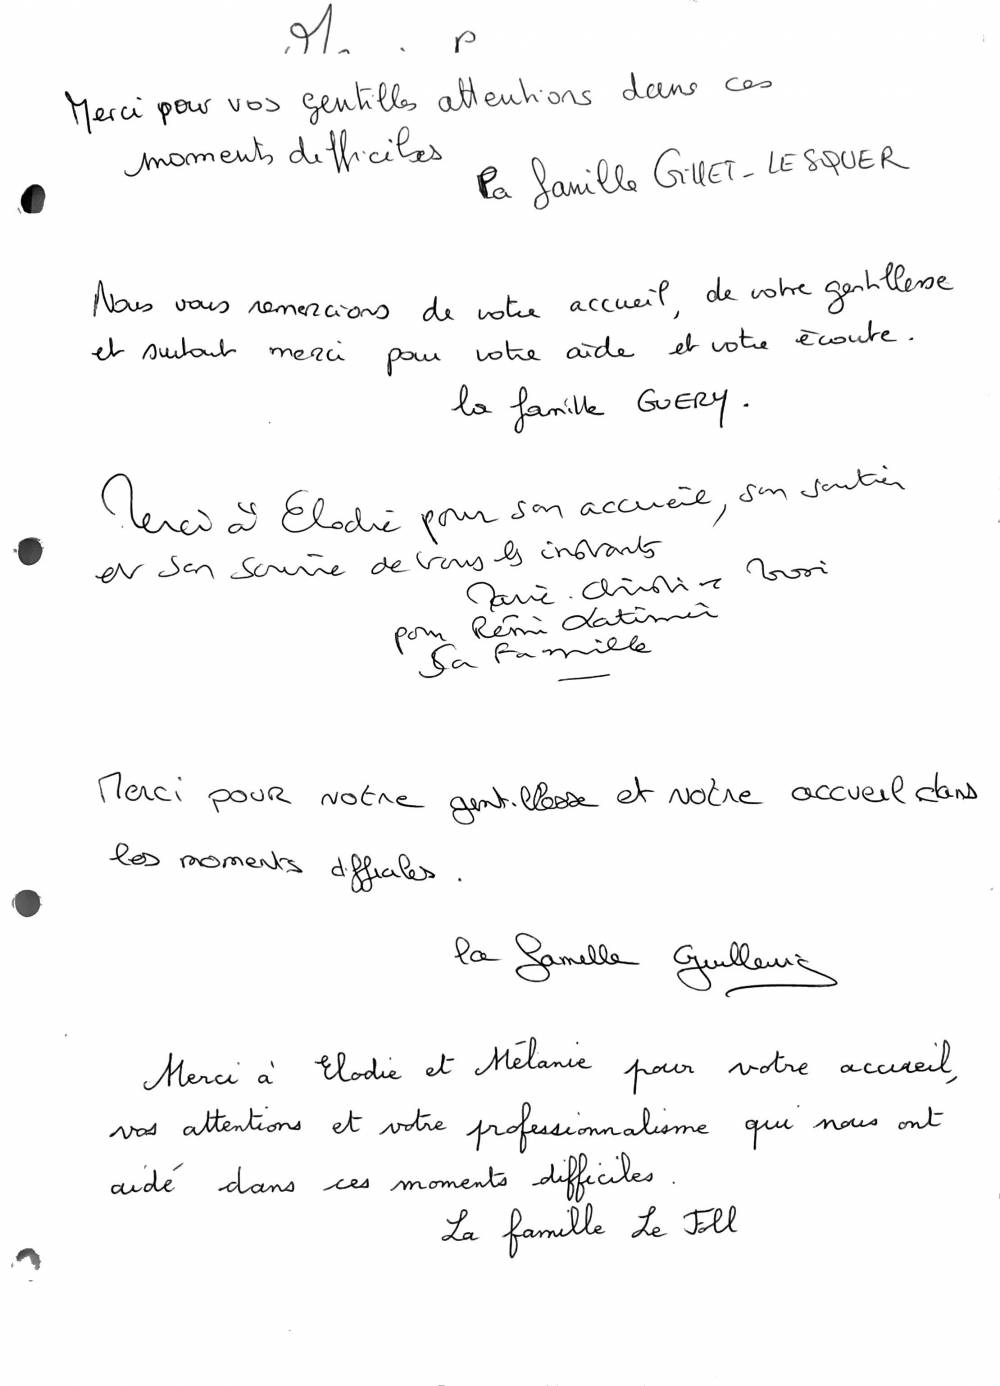 Merci pour vos gentilles attentions dans ces
moments difficiles
La famille GILLET-LESQUER
Nous vous remercions de votre accueil, de votre gentillesse
et surtout merci pour votre aide et votre écoute.
la famille GUERY.
Merci à Elodie pour son accueil, son soutien
et son sourire de tous les instants
Marie-Christine
pour Rémi Latimier
Sa Famille
Merci pour votre gentillesse et votre accueil dans
les moments difficiles.
la famille
Merci à Elodie et Mélanie pour votre accueil,
vos attentions et votre professionnalisme qui nous ont
aidé dans ces moments difficiles.
La famille Le Foll